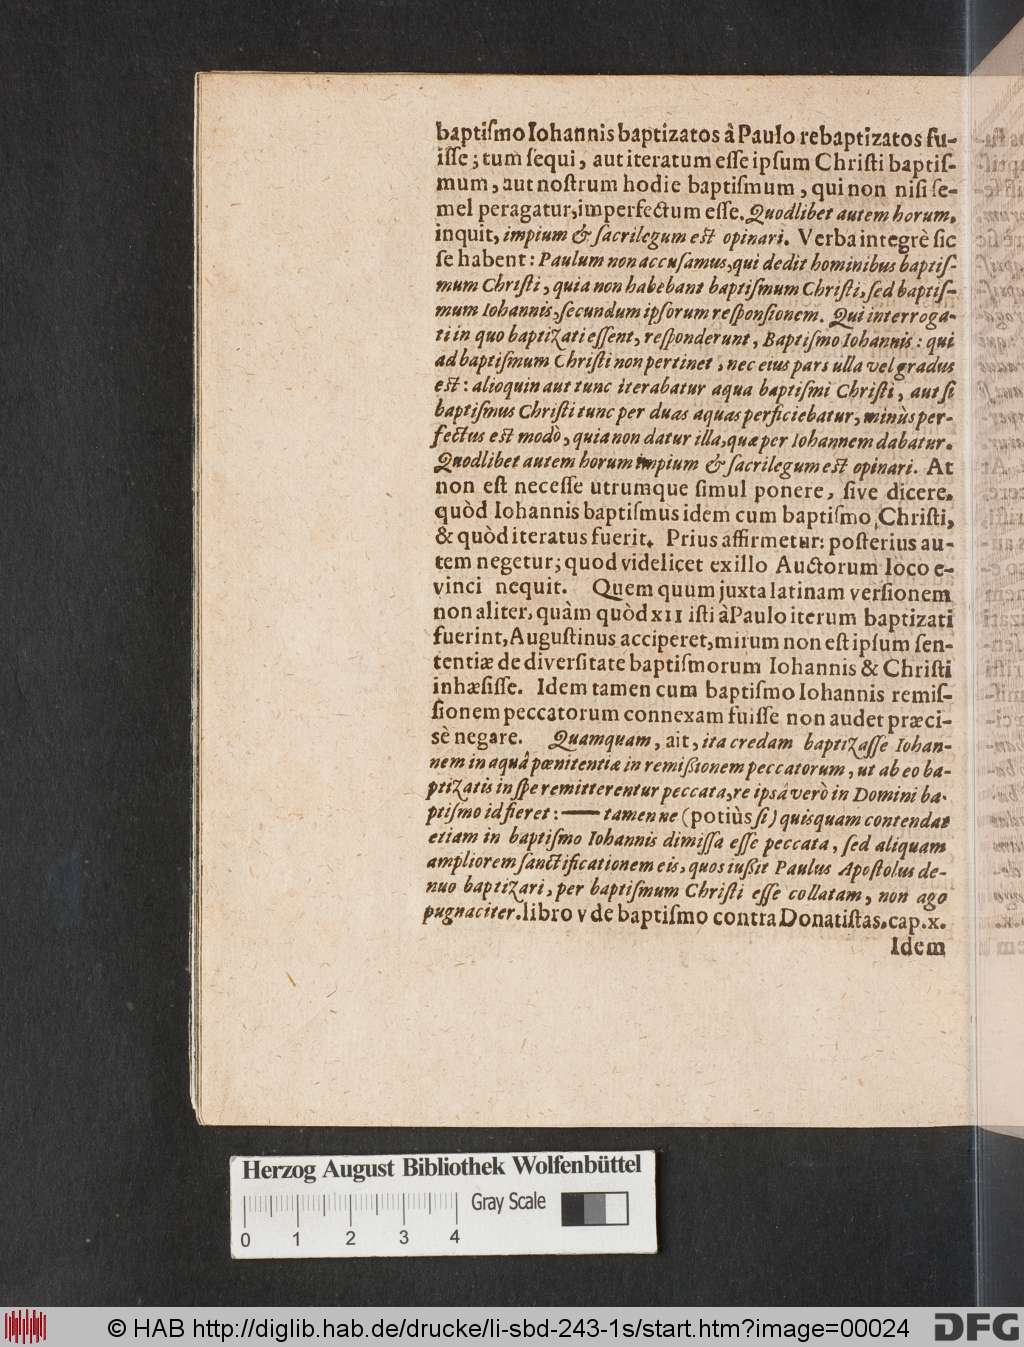 baptiſmo Iohannis baptizatos à Paulo rebaptizatos fu-
iſſe; tum ſequi, aut iteratum eſſe ipſum Chriſti baptiſ-
mum, aut noſtrum hodie baptiſmum, qui non niſi ſe-
mel peragatur, imperfectum eſſe. Quodlibet autem horum,
inquit, impium & ſacrilegum eſt opinari. Verba integrè ſic
ſe habent: Paulum non accuſamus, qui dedit hominibus baptiſ-
mum Chriſti, quia non habebant baptiſmum Chriſti, ſed baptiſ-
mum Iohannis, ſecundum ipſorum reſponſionem. Qui interroga-
ti in quo baptizati eſſent, reſponderunt, Baptiſmo Iohannis: qui
ad baptiſmum Chriſti non pertinet, nec eius pars ulla vel gradus
eſt: alioquin aut tunc iterabatur aqua baptiſmi Chriſti, aut ſi
baptiſmus Chriſti tunc per duas aquas perficiebatur, minùs per-
fectus eſt modò, quia non datur illa, quæ per Iohannem dabatur.
Quodlibet autem horum impium & ſacrilegum eſt opinari. At
non eſt neceſſe utrumque ſimul ponere, ſive dicere,
quòd Iohannis baptiſmus idem cum baptiſmo Chriſti,
& quòd iteratus fuerit. Prius affirmetur: poſterius au-
tem negetur; quod videlicet ex illo Auctorum loco e-
vinci nequit. Quem quum juxta latinam verſionem
non aliter, quàm quòd XII iſti à Paulo iterum baptizati
fuerint, Auguſtinus acciperet, mirum non eſt ipſum ſen-
tentiæ de diverſitate baptiſmorum Iohannis & Chriſti
inhæſiſſe. Idem tamen cum baptiſmo Iohannis remiſ-
ſionem peccatorum connexam fuiſſe non audet præci-
sè negare. Quamquam, ait, ita credam baptizaſſe Iohan-
nem in aquâ pœnitentiæ in remißionem peccatorum, ut ab eo ba-
ptizatis in ſpe remitterentur peccata, re ipsâ verò in Domini ba-
ptiſmo id fieret: — tamen ne (potiùs ſi) quisquam contendat
etiam in baptiſmo Iohannis dimiſſa eſſe peccata, ſed aliquam
ampliorem ſanctificationem eis, quos iußit Paulus Apoſtolus de-
nuo baptizari, per baptiſmum Chriſti eſſe collatam, non ago
pugnaciter. libro v de baptiſmo contra Donatiſtas. cap. x.
Idem
Herzog August Bibliothek Wolfenbüttel
Gray Scale
0 1 2 3 4
© HAB http://diglib.hab.de/drucke/li-sbd-243-1s/start.htm?image=00024
DFG